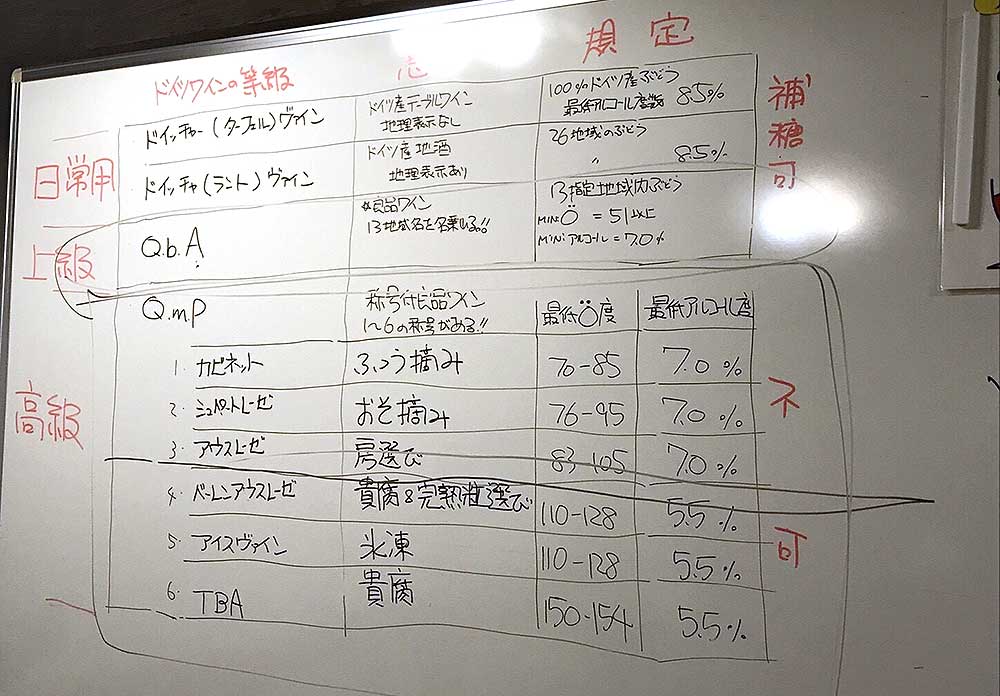 ドイツワインの等級 規定
日常用
ドイッチャー(ターフェル)ヴァイン
ドイツ産テーブルワイン
地理表示なし
100%ドイツ産ぶどう
最低アルコール度数 8.5%
補糖可
ドイッチャ(ラント)ヴァイン
ドイツ産地酒
地理表示あり
26地域のぶどう
〃 8.5%
上級
Q.b.A
良品ワイン
13地域名を名乗れる!!
13指定地域内ぶどう
MIN Ö = 51以上
MINアルコール = 7.0%
高級
Q.m.P
称号付良品ワイン
1~6の称号がある!!
最低Ö度
最低アルコール度
不可
1. カビネット ふつう摘み 70-85 7.0%
2. シュペートレーゼ おそ摘み 76-95 7.0%
3. アウスレーゼ 房選び 83-105 7.0%
4. ベーレンアウスレーゼ 貴腐&完熟粒選び 110-128 5.5%
5. アイスヴァイン 氷凍 110-128 5.5%
6. TBA 貴腐 150-154 5.5%